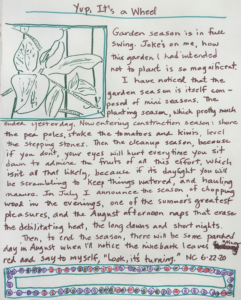 Yup, It's a Wheel
Garden season is in full
swing. Joke's on me, how
this garden I had intended
not to plant is so magnificent.
I have noticed that the
garden season is itself com-
posed of mini seasons. The
planting season, which pretty much
ended yesterday. Now entering construction season: I shore
the pea poles, stake the tomatoes and kiwis, level
the stepping stones. Then the cleanup season, because
if you don't, your eyes will hurt everytime you sit
down to admire the fruits of all this effort, which
isn't all that likely, because if its daylight you will
be scrambling to keep things watered, and hauling
manure. In July I announce the season of chopping
wood in the evenings, one of the summer's greatest
pleasures, and the August afternoon naps that erase
the debilitating heat, the long dawns and short nights.
Then, to end the season, there will be some parched
day in August when I'll notice the ninebark leaves going
red and say to myself, "Look, its turning." NC 6-22-20